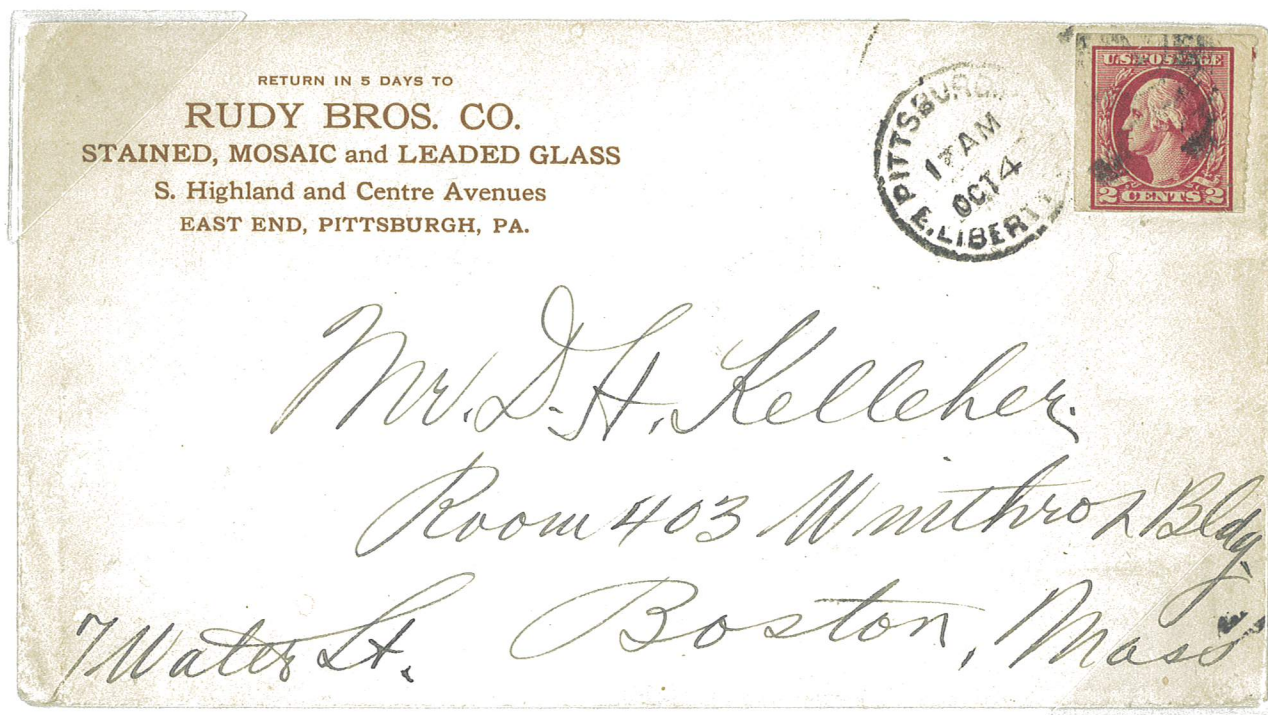 RETURN IN 5 DAYS TO
RUDY BROS. CO.
STAINED, MOSAIC and LEADED GLASS
S. Highland and Centre Avenues
EAST END, PITTSBURGH, PA.
PITTSBURGH
AM
OCT 4
E. LIBERTY
U.S. POSTAGE
2 CENTS 2
Mr. D. H. Kelleher.
Room 403 Winthrop Bldg.
7 Water St. Boston, Mass